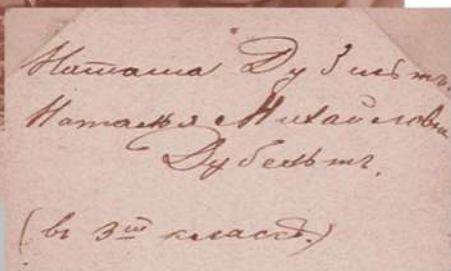 Наташа Дубельтъ.
Наталья Михайловна
Дубельтъ.
(въ 3ей классѣ.)